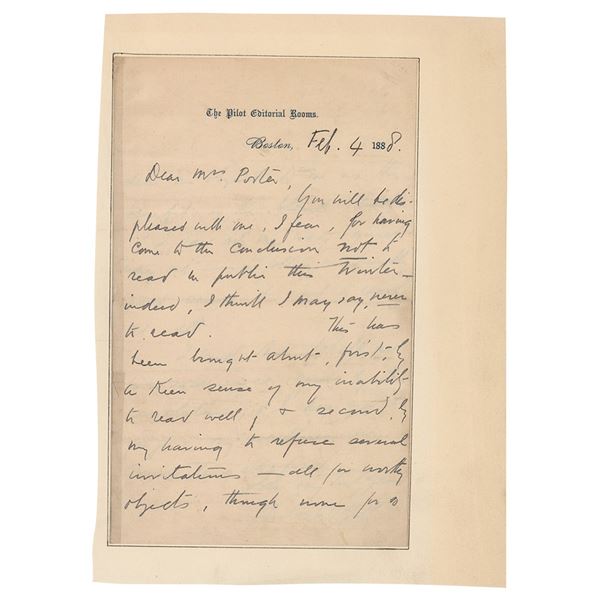 The Pilot Editorial Rooms.
Boston, Feb. 4 1888.
Dear Mrs. Porter,
You will be dis-
pleased with me, I fear, for having
come to the conclusion not to
read in public this Winter—
indeed, I think I may say, never
to read. This has
been brought about, first, by
a keen sense of my inability
to read well, & second, by
my having to refuse several
invitations — all for worthy
objects, though none for so